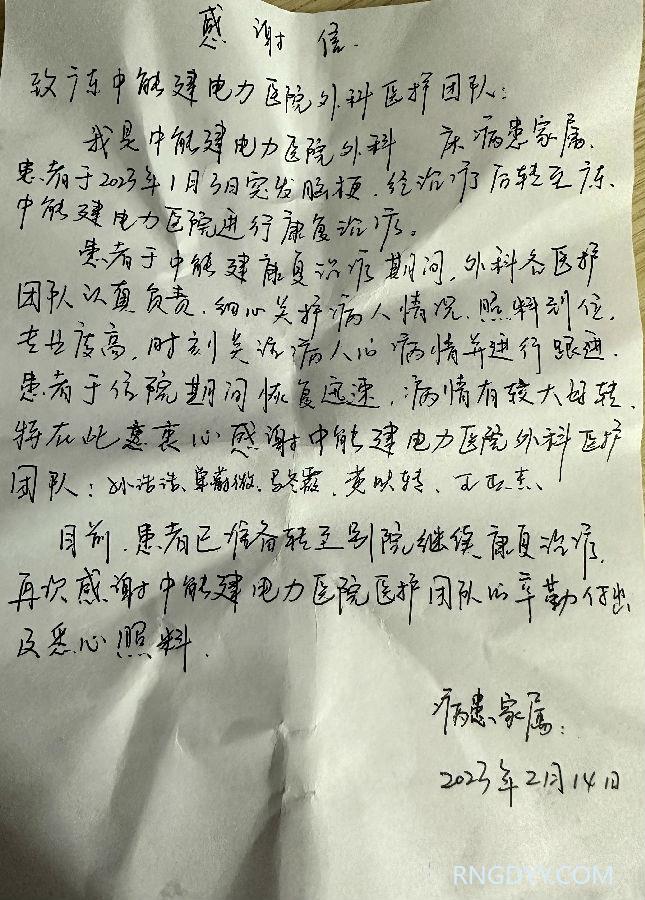 感谢信.
致广东中能建电力医院外科医护团队:
我是中能建电力医院外科 床病患家属.
患者于2023年1月3日突发脑梗.经治疗后转至广东
中能建电力医院进行康复治疗。
患者于中能建康复治疗期间,外科各医护
团队认真负责.细心关护病人情况.照料到位.
专业度高,时刻关注病人的病情并进行跟进.
患者于住院期间恢复迅速,病情有较大好转.
特在此衷心感谢中能建电力医院外科医护
团队:孙浩浩、 黄映转、
目前.患者已准备转至别院继续康复治疗.
再次感谢中能建电力医院医护团队的辛勤付出
及悉心照料.
病患家属:
2023年2月14日
RNGDYY.COM